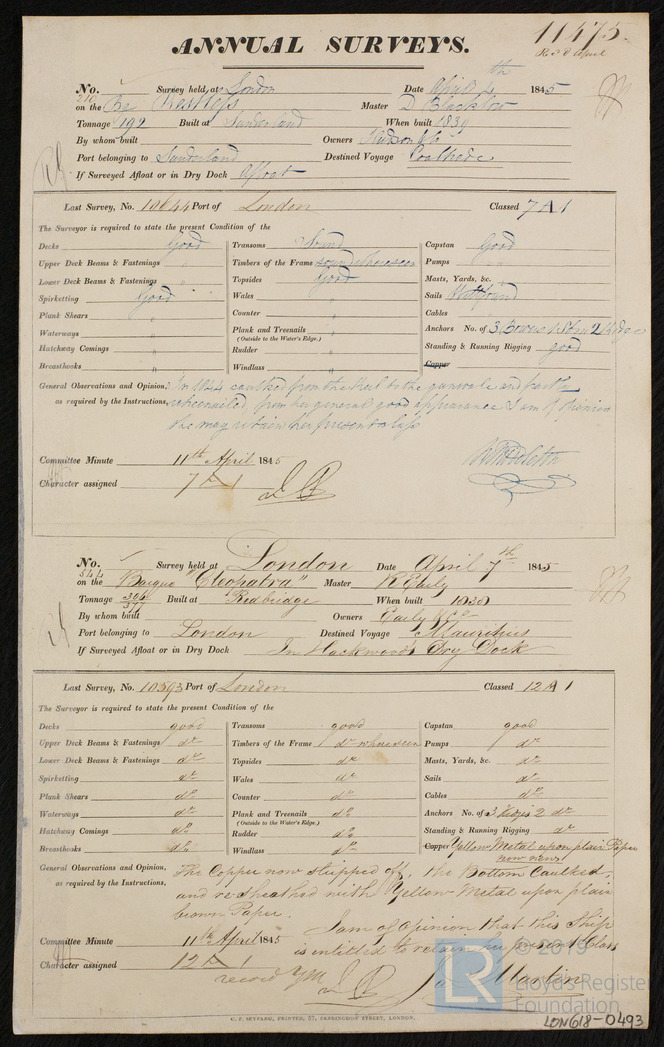 11475
Rec'd April
ANNUAL SURVEYS.
No. Survey held at London Date April 4th 1845
210
on the Bg Restless Master D Blacktor
Tonnage 192 Built at Sunderland When built 1839
By whom built Owners Hudson & Co
Port belonging to Sunderland Destined Voyage Coal trade
If Surveyed Afloat or in Dry Dock Afloat
Last Survey, No. 10644 Port of London Classed 7 A 1
The Surveyor is required to state the present Condition of the
Decks good Transoms Sound Capstan Good
Upper Deck Beams & Fastenings " Timbers of the Frame sound where seen Pumps "
Lower Deck Beams & Fastenings " Topsides Good Masts, Yards, &c.
Spirketting Good Wales Sails
Plank Shears " Counter Cables
Waterways " Plank and Treenails " Anchors No. of 3 Bowers
(Outside to the Water's Edge.)
Hatchway Comings " Rudder Standing & Running Rigging good
Breasthooks " Windlass " Copper
General Observations and Opinion, In 1844 caulked from the keel to the gunwale and partly
as required by the Instructions, retreenailed, from her general good appearance I am of opinion
she may retain her present class
Committee Minute 11th April 1845
Character assigned 7 A 1
No. Survey held at London Date April 7th 1845
544
on the Barque "Cleopatra" Master R Early
Tonnage 306/377 Built at Redbridge When built 1839
By whom built Owners Early & Co
Port belonging to London Destined Voyage Mauritius
If Surveyed Afloat or in Dry Dock In Hackwood's Dry Dock
Last Survey, No. 10593 Port of London Classed 12 A 1
The Surveyor is required to state the present Condition of the
Decks good Transoms good Capstan good
Upper Deck Beams & Fastenings do Timbers of the Frame do where seen Pumps do
Lower Deck Beams & Fastenings do Topsides do Masts, Yards, &c. do
Spirketting do Wales do Sails do
Plank Shears do Counter do Cables do
Waterways do Plank and Treenails do Anchors No. of 3 Kedges 2 do
(Outside to the Water's Edge.)
Hatchway Comings do Rudder do Standing & Running Rigging do
Breasthooks do Windlass do Copper Yellow Metal upon plain Paper
now new
General Observations and Opinion, The Copper now stripped off, the Bottom Caulked,
as required by the Instructions, and resheathed with Yellow Metal upon plain
brown Paper.
I am of Opinion that this Ship
is entitled to retain her present Class
Committee Minute 11th April 1845
Character assigned 12 A 1
record YM
Jas Martin
C. F. SEYFANG, PRINTER, 57, FARRINGDON STREET, LONDON.
LR
© 2019
Lloyd's Register
Foundation
LON618-0493